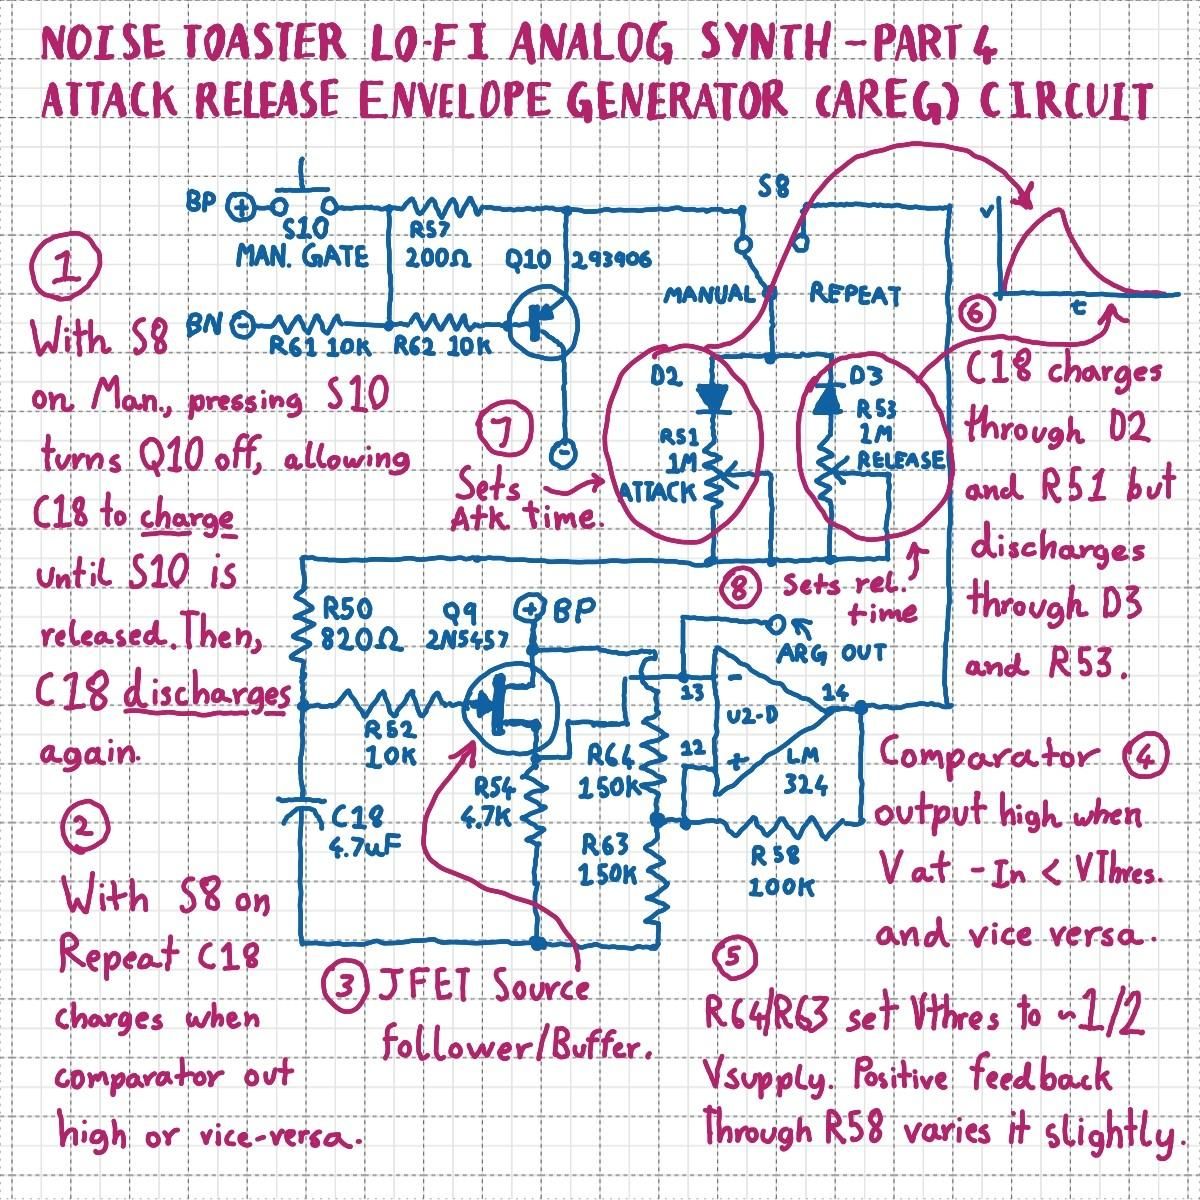 NOISE TOASTER LO-FI ANALOG SYNTH - PART 4
ATTACK RELEASE ENVELOPE GENERATOR (AREG) CIRCUIT
BP +
S10
MAN. GATE
R57
200Ω
Q10 293906
S8
MANUAL
REPEAT
V
t
BN -
R61 10K
R62 10K
-
1
With S8
on Man., pressing S10
turns Q10 off, allowing
C18 to charge
until S10 is
released. Then,
C18 discharges
again.
7
Sets
Atk time.
D2
R51
1M
ATTACK
D3
R53
1M
RELEASE
6
C18 charges
through D2
and R51 but
discharges
through D3
and R53.
8 Sets rel.
time
R50
820Ω
Q9
2N5457
+ BP
R52
10K
ARG OUT
13
-
14
U2-D
12
+
LM
324
R64
150K
R54
4.7K
C18
4.7uF
R63
150K
R58
100K
2
With S8 on
Repeat C18
charges when
comparator out
high or vice-versa.
3 JFET Source
follower/Buffer.
Comparator 4
output high when
V at -In < VThres.
and vice versa.
5
R64/R63 set Vthres to ~1/2
Vsupply. Positive feedback
Through R58 varies it slightly.